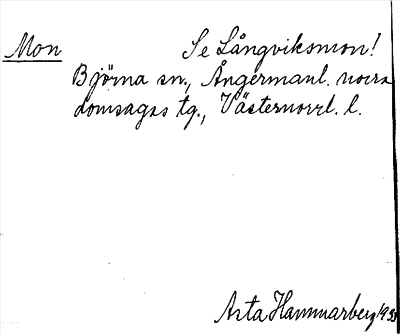 Mon Se Långviksmon!
Björna sn., Ångermanl. norra
domsagas tg., Västernorrl. l.
Asta Hammarberg 1933